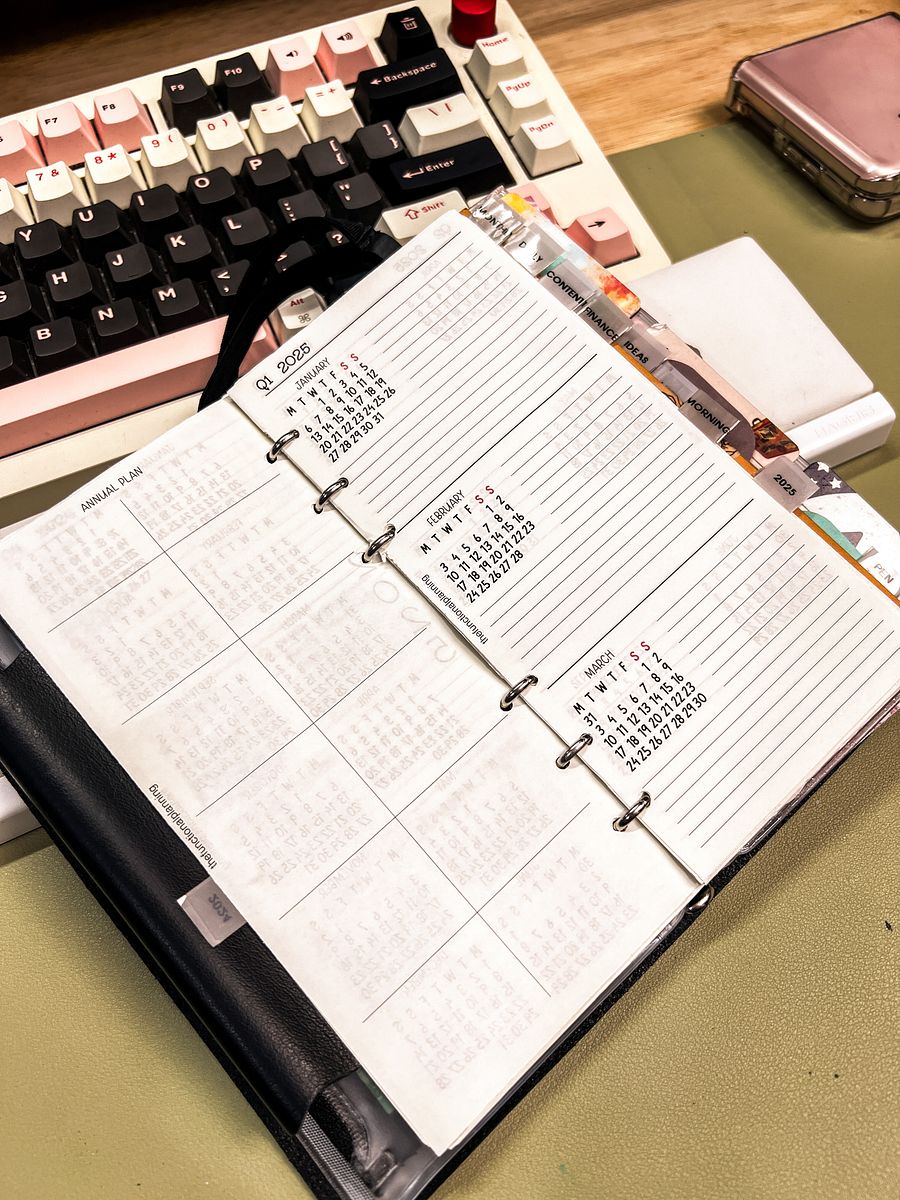 F7
F8
F9
F10
Backspace
Home
7 &
8 *
9 (
0 )
- _
= +
\ |
PgUp
Y
U
I
O
P
[ {
] }
Enter
PgDn
G
H
J
K
L
; :
' "
Shift
B
N
M
, <
?
Alt
⌘
ANNUAL PLAN
thefunctionalplanning
2024
Q1 2025
JANUARY
M T W T F S S
1 2 3 4 5
6 7 8 9 10 11 12
13 14 15 16 17 18 19
20 21 22 23 24 25 26
27 28 29 30 31
FEBRUARY
M T W T F S S
1 2
3 4 5 6 7 8 9
10 11 12 13 14 15 16
17 18 19 20 21 22 23
24 25 26 27 28
thefunctionalplanning
MARCH
M T W T F S S
31 1 2
3 4 5 6 7 8 9
10 11 12 13 14 15 16
17 18 19 20 21 22 23
24 25 26 27 28 29 30
CONTENT
FINANCE
IDEAS
MORNING
2025
PEN